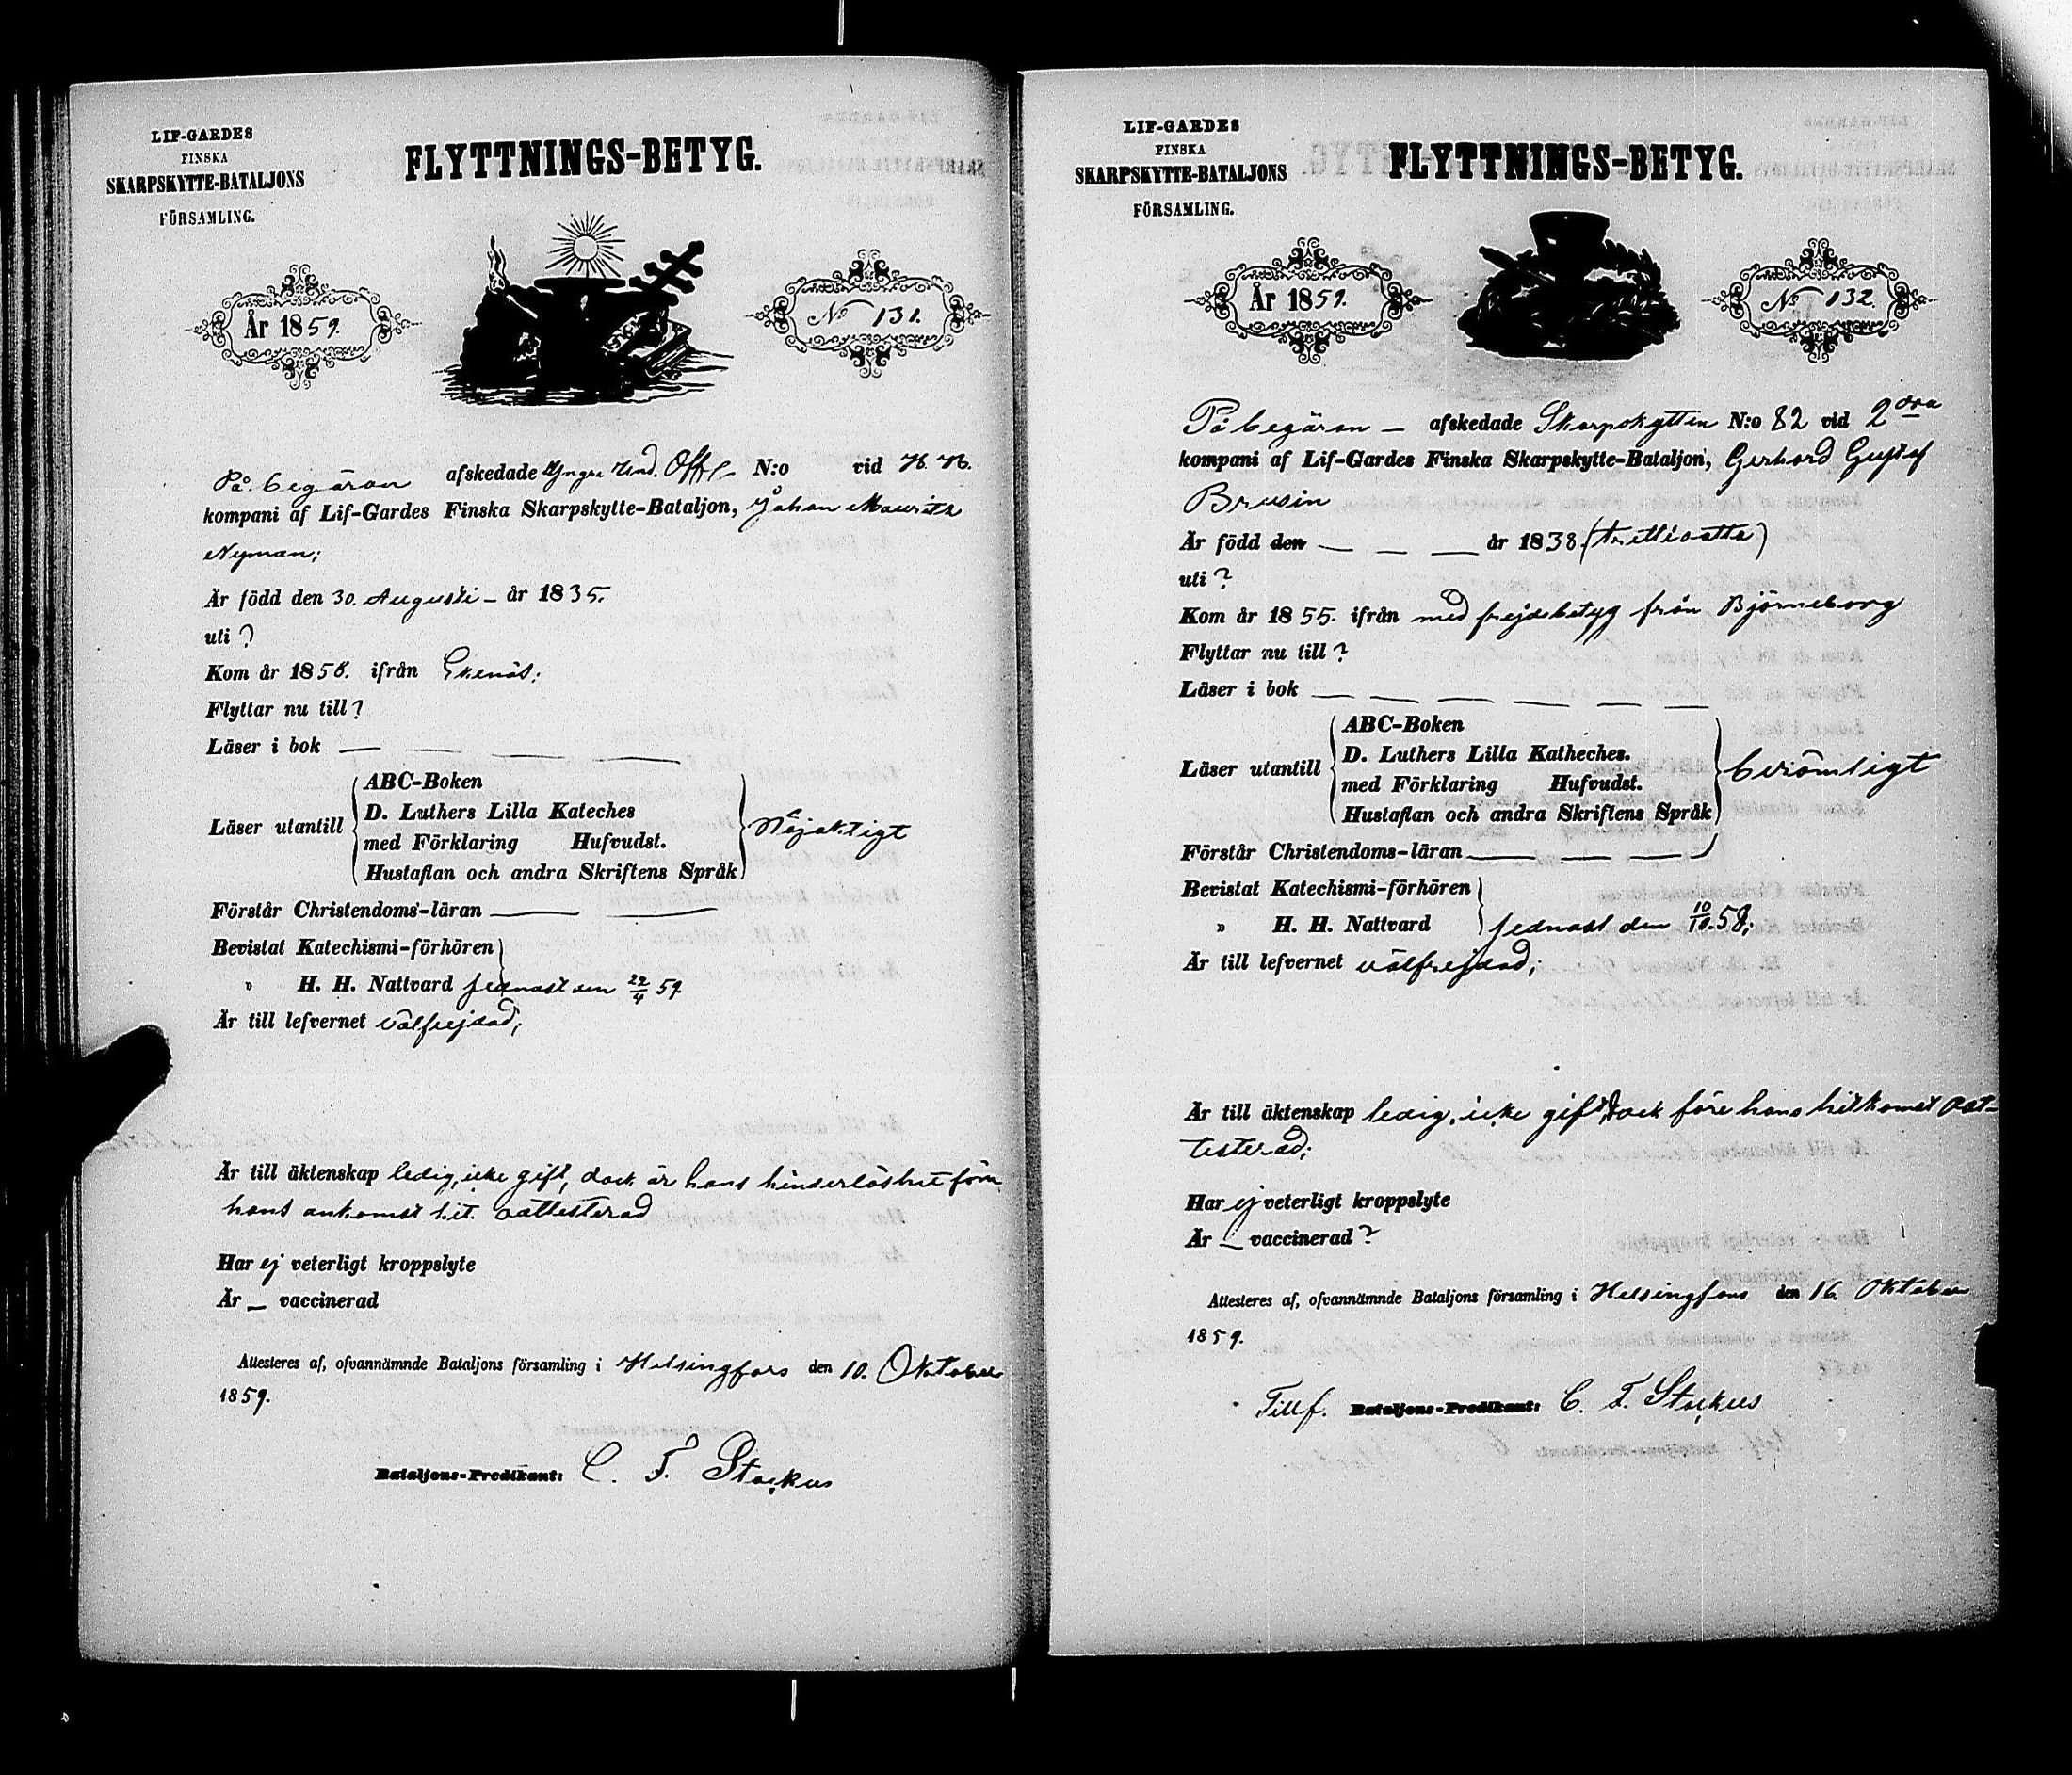 LIF-GARDES
FINSKA
SKARPSKYTTE-BATALJONS
FÖRSAMLING.
FLYTTNINGS-BETYG.
År 1859.
No 131.
På begäran afskedade Yngre Und. Off. N:o vid
kompani af Lif-Gardes Finska Skarpskytte-Bataljon, Johan Mauritz
Nyman;
Är född den 30. Augusti - år 1835.
uti ?
Kom år 1858. ifrån Ekenäs;
Flyttar nu till ?
Läser i bok — — — —
Läser utantill
ABC-Boken
D. Luthers Lilla Kateches
med Förklaring Hufvudst.
Hustaflan och andra Skriftens Språk
Nöjaktigt
Förstår Christendoms-läran — —
Bevistat Katechismi-förhören
" H. H. Nattvard sednast den 22/4 59.
Är till lefvernet välfrejdad;
Är till äktenskap ledig, icke gift, dock är hans hinderlöshet före
hans ankomst hit. oattesterad
Har ej veterligt kroppslyte
Är — vaccinerad
Attesteres af, ofvannämnde Bataljons församling i Helsingfors den 10. Oktober
1859.
Bataljons-Predikant: C. F. Stackus
LIF-GARDES
FINSKA
SKARPSKYTTE-BATALJONS
FÖRSAMLING.
FLYTTNINGS-BETYG.
År 1859.
No 132.
På begäran — afskedade Skarpskytten N:o 82 vid 2dra
kompani af Lif-Gardes Finska Skarpskytte-Bataljon, Gerhard Gustaf
Brusin
Är född den — — — år 1838. (trettioåtta)
uti ?
Kom år 1855. ifrån med frejdebetyg från Björneborg
Flyttar nu till ?
Läser i bok — — — — — —
Läser utantill
ABC-Boken
D. Luthers Lilla Katheches.
med Förklaring Hufvudst.
Hustaflan och andra Skriftens Språk
berömligt
Förstår Christendoms-läran — — —
Bevistat Katechismi-förhören
" H. H. Nattvard sednast den 10/10. 58;
Är till lefvernet välfrejdad;
Är till äktenskap ledig, icke gift, dock före hans hitkomst oat-
testerad;
Har ej veterligt kroppslyte
Är — vaccinerad ?
Attesteres af, ofvannämnde Bataljons församling i Helsingfors den 16. Oktober
1859.
Tillf. Bataljons-Predikant: C. F. Stackus